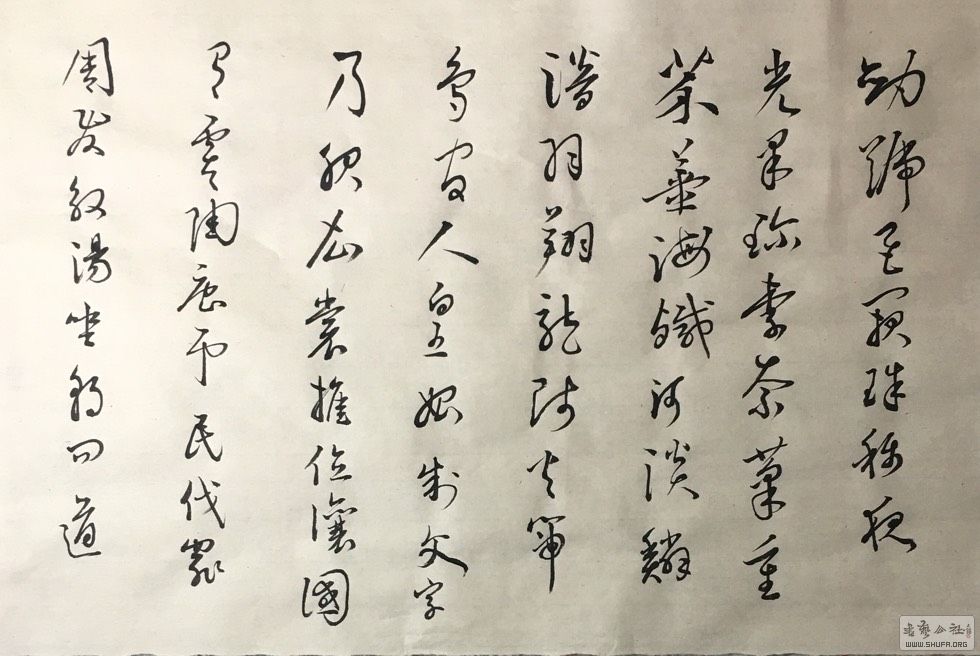 劍號巨闕珠稱夜
光果珍李柰菜重
芥薑海鹹河淡鱗
潛羽翔龍師火帝
鳥官人皇始制文字
乃服衣裳推位讓國
有虞陶唐弔民伐罪
周發殷湯坐朝問道
書藝公社
WWW.SHUFA.ORG